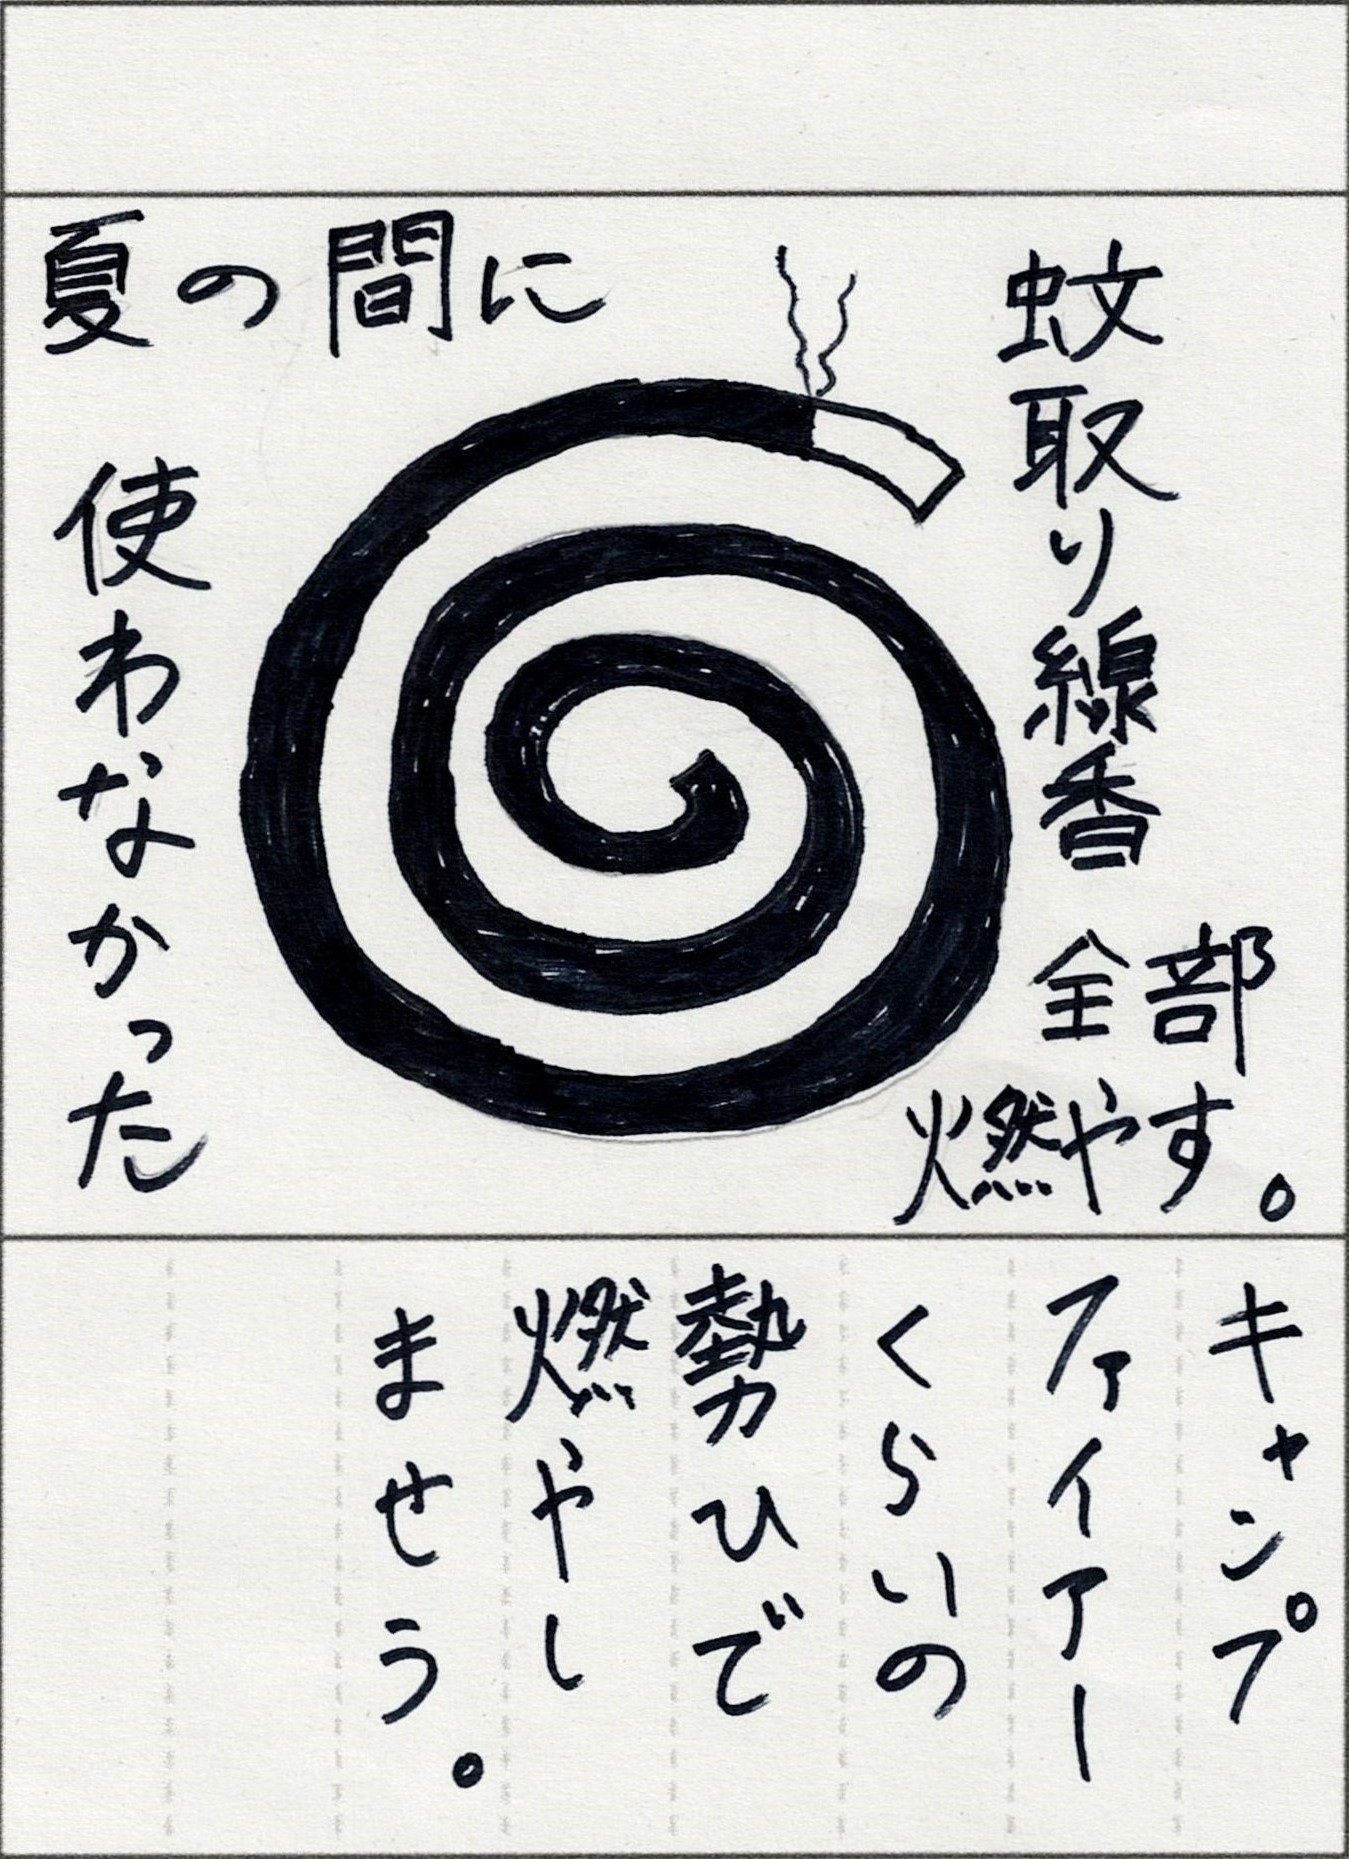 夏の間に
使わなかった
蚊取り線香
全部
燃やす。
キャンプ
ファイアー
くらいの
勢ひで
燃やし
ませう。